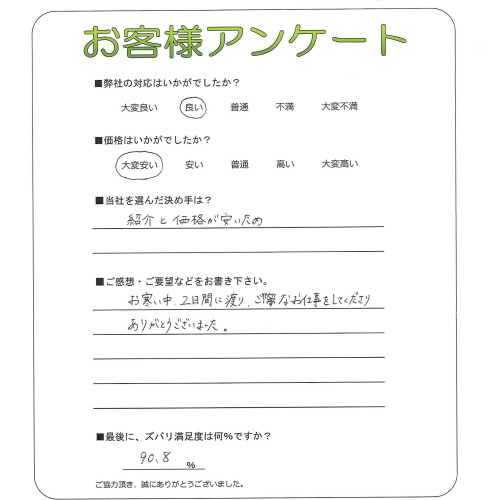 お客様アンケート
■弊社の対応はいかがでしたか?
大変良い 良い 普通 不満 大変不満
■価格はいかがでしたか?
大変安い 安い 普通 高い 大変高い
■当社を選んだ決め手は?
紹介と価格が安いため
■ご感想・ご要望などをお書き下さい。
お寒い中、2日間に渡り、ご丁寧なお仕事をしてくださり
ありがとうございました。
■最後に、ズバリ満足度は何%ですか?
90.8 %
ご協力頂き、誠にありがとうございました。